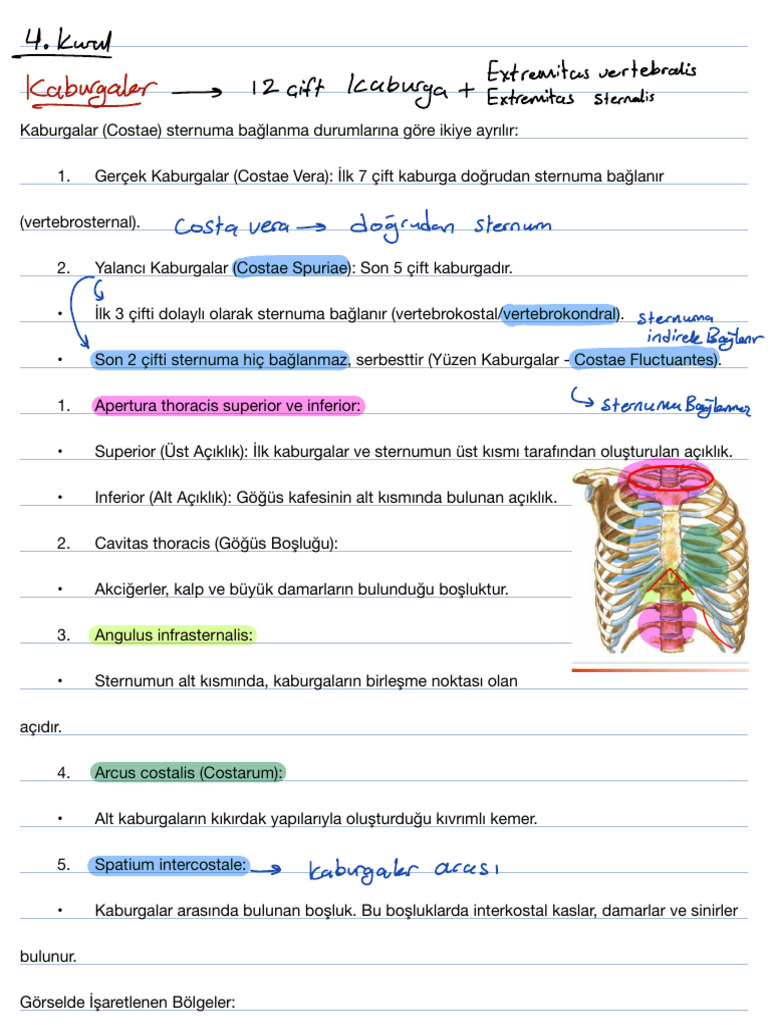 4. Kurul
Kaburgalar → 12 çift Kaburga + Extremitas vertebralis
Extremitas sternalis
Kaburgalar (Costae) sternuma bağlanma durumlarına göre ikiye ayrılır:
1. Gerçek Kaburgalar (Costae Vera): İlk 7 çift kaburga doğrudan sternuma bağlanır
(vertebrosternal). Costa vera → doğrudan sternum
2. Yalancı Kaburgalar (Costae Spuriae): Son 5 çift kaburgadır.
• İlk 3 çifti dolaylı olarak sternuma bağlanır (vertebrokostal/vertebrokondral). sternuma
indirek Bağlanır
• Son 2 çifti sternuma hiç bağlanmaz, serbesttir (Yüzen Kaburgalar - Costae Fluctuantes).
1. Apertura thoracis superior ve inferior: ↳ sternuma Bağlanmaz
• Superior (Üst Açıklık): İlk kaburgalar ve sternumun üst kısmı tarafından oluşturulan açıklık.
• Inferior (Alt Açıklık): Göğüs kafesinin alt kısmında bulunan açıklık.
2. Cavitas thoracis (Göğüs Boşluğu):
• Akciğerler, kalp ve büyük damarların bulunduğu boşluktur.
3. Angulus infrasternalis:
• Sternumun alt kısmında, kaburgaların birleşme noktası olan
açıdır.
4. Arcus costalis (Costarum):
• Alt kaburgaların kıkırdak yapılarıyla oluşturduğu kıvrımlı kemer.
5. Spatium intercostale: → kaburgalar arası
• Kaburgalar arasında bulunan boşluk. Bu boşluklarda interkostal kaslar, damarlar ve sinirler
bulunur.
Görselde İşaretlenen Bölgeler: